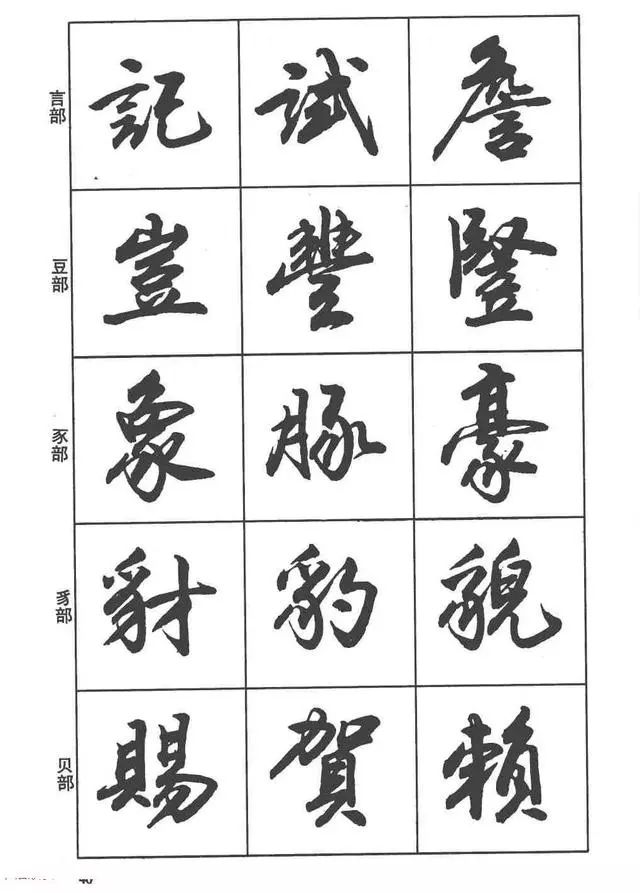 言部 記 試 詹
豆部 豈 豐 豎
豕部 象 豚 豪
豸部 豺 豹 貌
贝部 賜 賀 賴
40